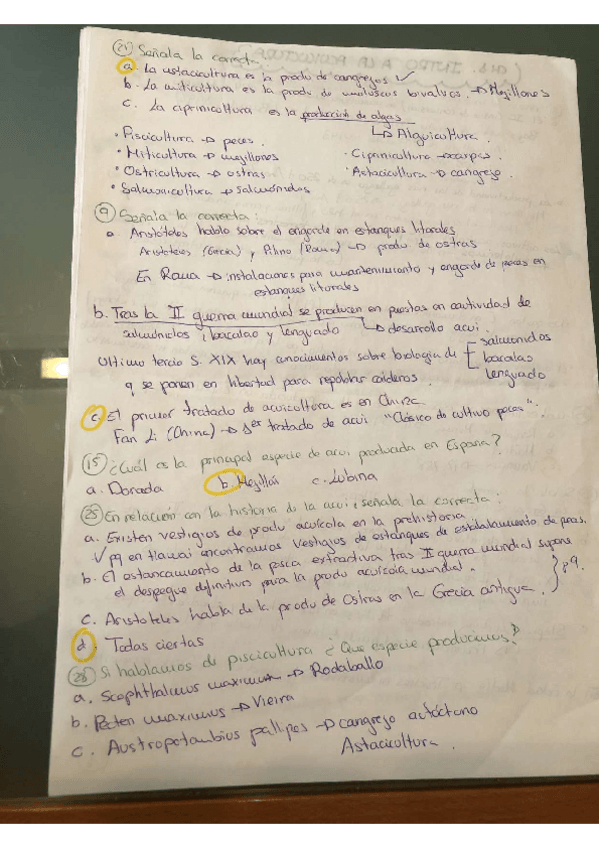 21) Señala la correcta:
a. La astacicultura es la produ de cangrejos ✓
b. La miticultura es la produ de moluscos bivalvos. → Mejillones
c. La ciprinicultura es la producción de algas
↳ Alguicultura.
• Piscicultura → peces.
• Miticultura → mejillones
• Ciprinicultura → carpas.
• Ostricultura → ostras
• Astacicultura → cangrejo
• Salmonicultura → salmónidos
9) Señala la correcta:
a Aristóteles habló sobre el engorde en estanques litorales
Aristóteles (Grecia) y Plinio (Roma) → produ de ostras
En Roma → instalaciones para mantenimiento y engorde de peces en
estanques litorales
b. Tras la II guerra mundial se producen en puestas en cautividad de
salmónidos, bacalao y lenguado
↳ desarrollo acui.
Ultimo tercio S. XIX hay conocimientos sobre biología de [ salmonidos
bacalao
lenguado
q se ponen en libertad para repoblar caladeros.
c. El primer tratado de acuicultura es en China
Fan Li (China) → 1er tratado de acui "Clásico de cultivo peces".
15) ¿Cuál es la principal especie de acui producida en España?
a. Dorada
b. Mejillón
c. Lubina
25) En relación con la historia de la acui, señala la correcta:
a. Existen vestigios de produ acuícola en la prehistoria
✓ pq en Hawai encontramos vestigios de estanques de estabulamiento de peces.
b. El estancamiento de la pesca extractiva tras II guerra mundial supone
el despegue definitivo para la produ acuícola mundial.
c. Aristóteles habla de la produ de Ostras en la Grecia antigua.
} 9.
d. Todas ciertas
28) Si hablamos de piscicultura ¿Que especie producimos?
a. Scophthalmus maximus → Rodaballo
b. Pecten maximus → Vieira
c. Austropotambius pallipes → cangrejo autóctono
Astacicultura.